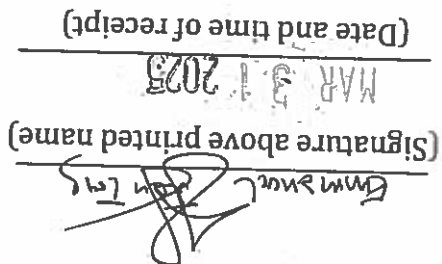 Emmanuel
(Signature above printed name)
MAR 31 2025
(Date and time of receipt)